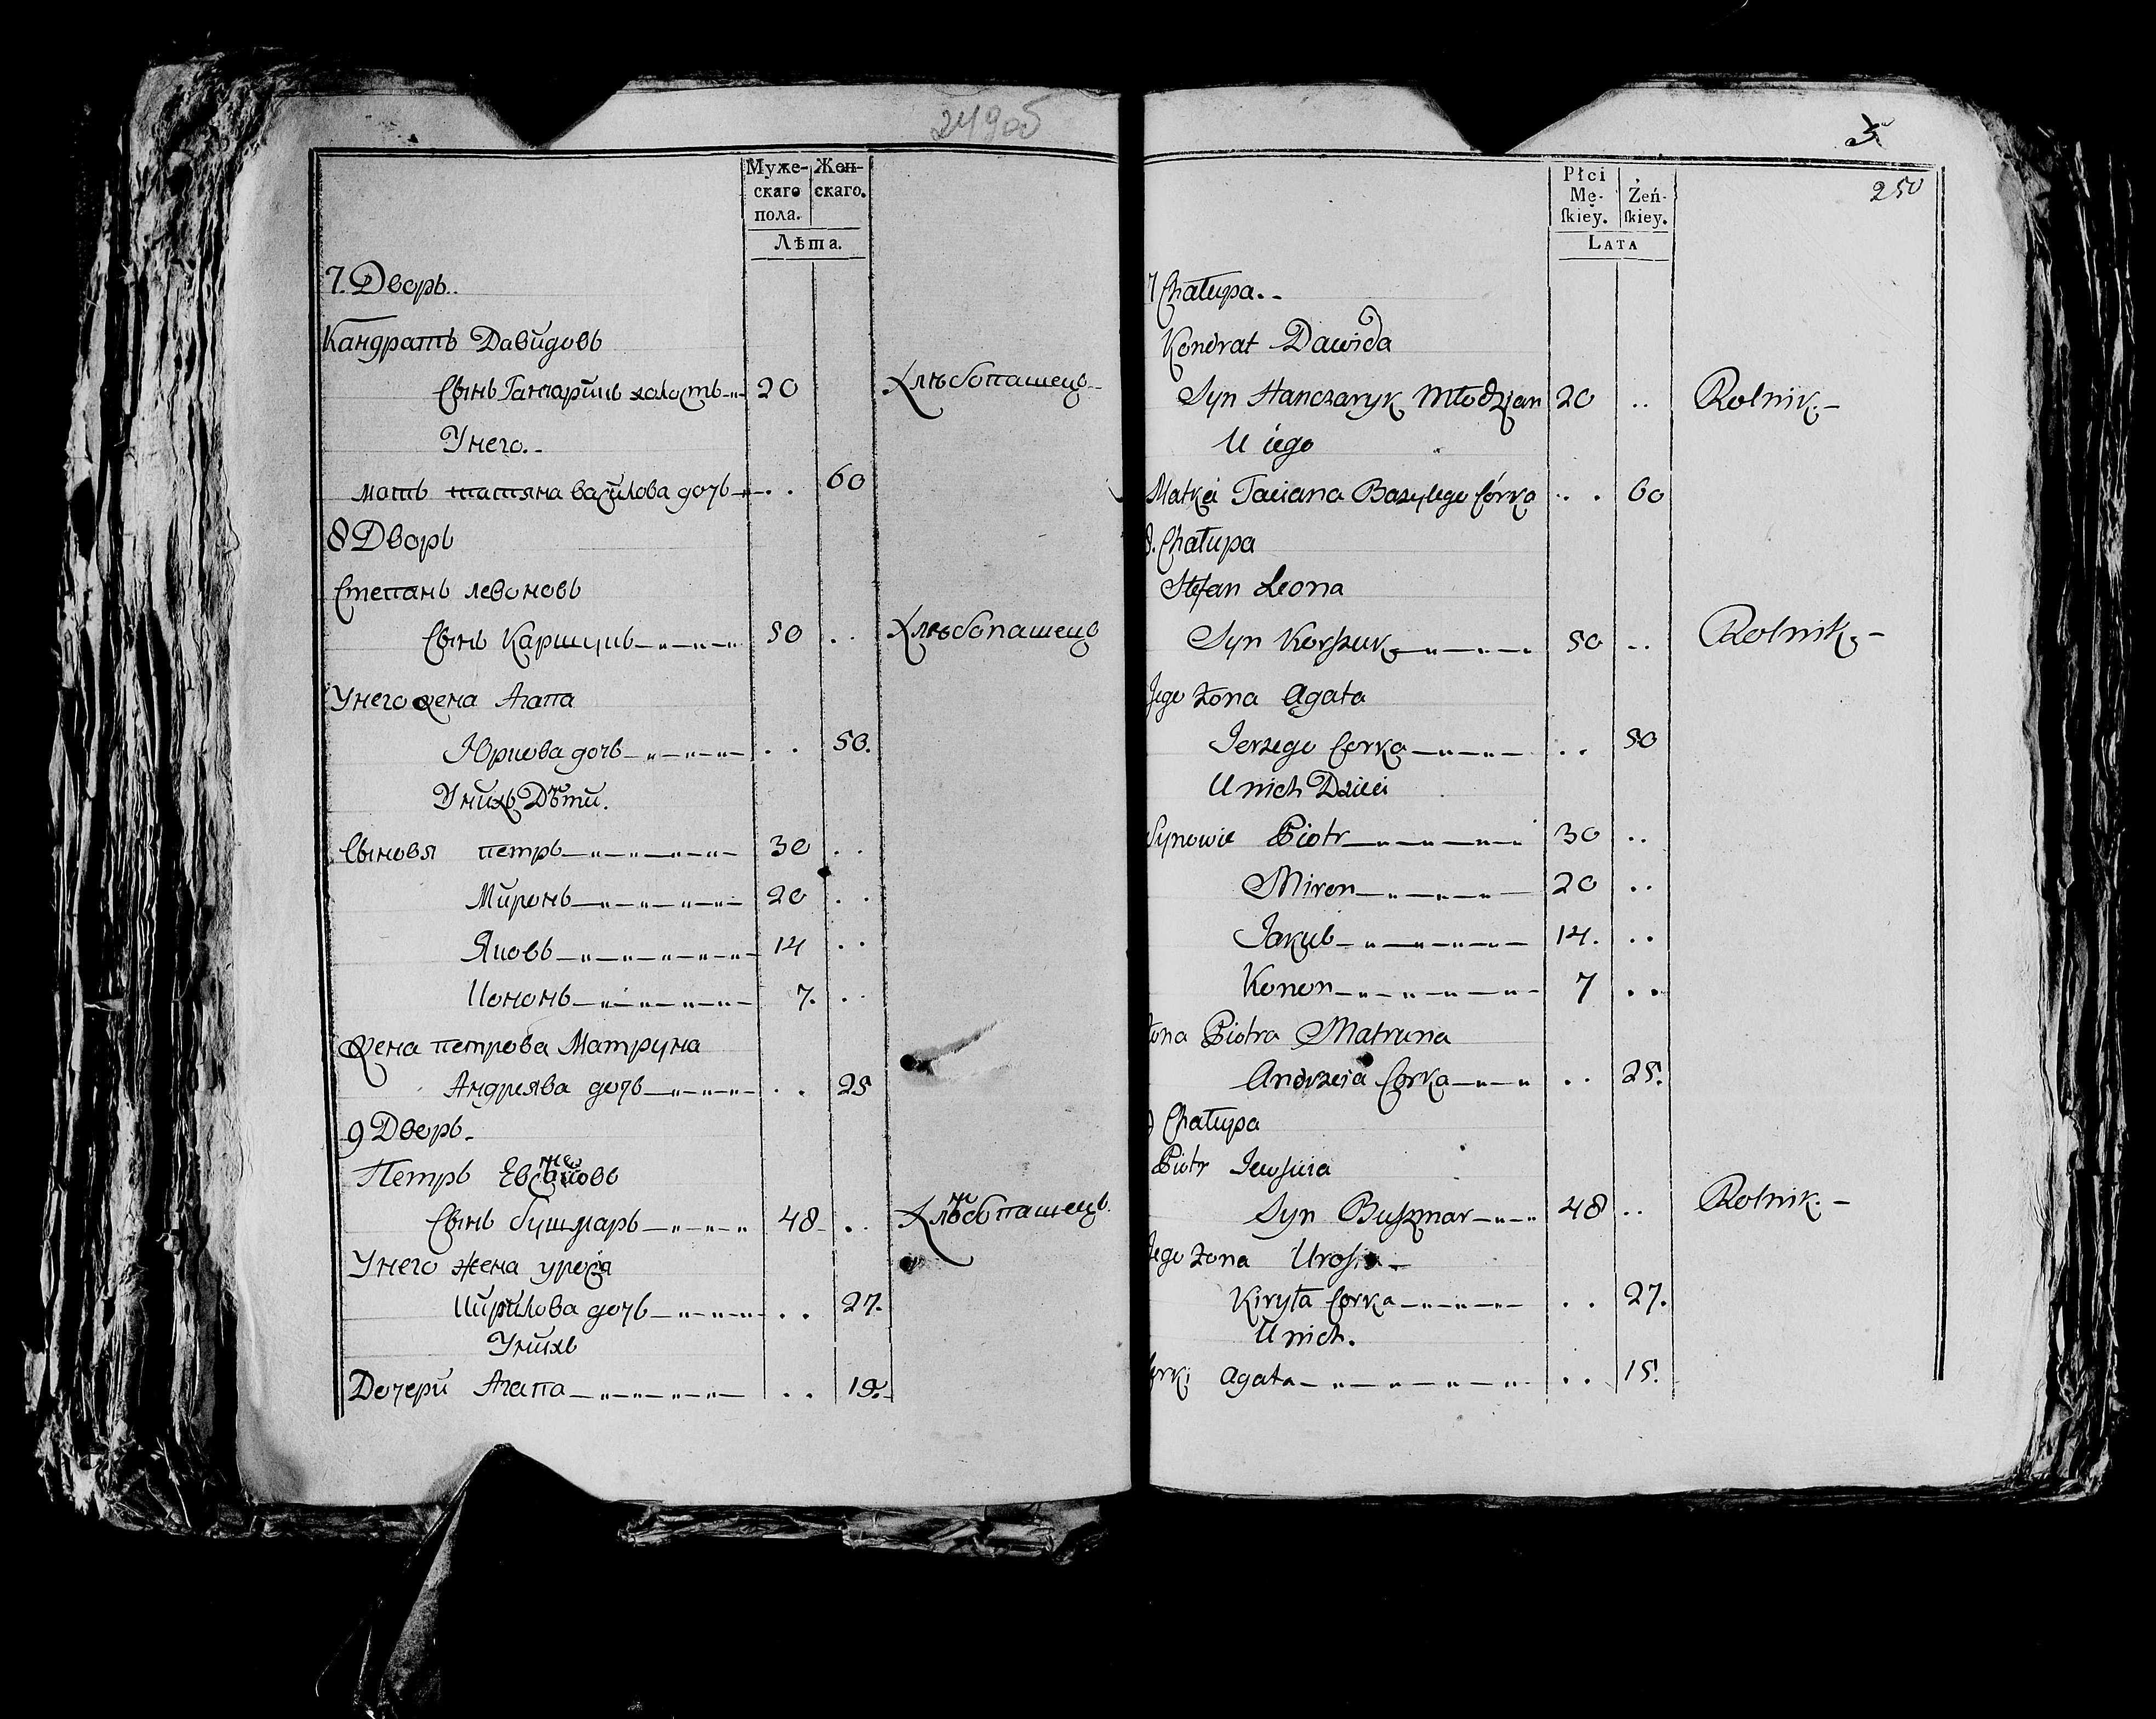 249об
Муже- Жен-
скаго скаго.
пола.
Лѣта.
7. Дворъ..
Кандратъ Давидовъ
Сынъ Ганчарикъ холостъ 20 Хлѣбопашецъ
Унего.-
мать татяна василова дочь . . 60
8 Дворъ
Степанъ левоновъ
Сынъ Каршукъ 50 . . Хлѣбопашецъ
Унего жена Агапа
Юркова дочь . . 50.
Унихъ Дѣти.
Сыновя петръ 30 . .
Миронъ 20 . .
Яковъ 14 . .
Кононъ 7. . .
Жена петрова Матруна
Андреява дочь . . 25
9 Дворъ.
Петръ
Сынъ бушмаръ 48 . . Хлѣбопашецъ.
Унего жена
Кирилова дочь . . 27.
Унихъ
Дочери Агапа . .
250
Płci
Mę- Żeń-
ſkiey. ſkiey.
LATA
7 Chałupa..
Kondrat Dawida
Syn Hanczaryk Młodzian 20 .. Rolnik.-
U iego
Matka Taciana Bazylego Córka . . 60
8. Chałupa
Stefan Leona
Syn Korszuk 50 .. Rolnik.-
Jego żona Agata
Jerzego Corka . . 50
U nich Dzieci
Synowie Piotr 30 ..
Miron 20 ..
Jakub 14. ..
Konon 7 ..
żona Piotra Matruna
Andrzeia Corka . . 25.
9 Chałupa
Piotr
Syn Buszmar 48 .. Rolnik.-
Jego żona
Kiryła Corka . . 27.
U nich.
Corki Agata . . 15.